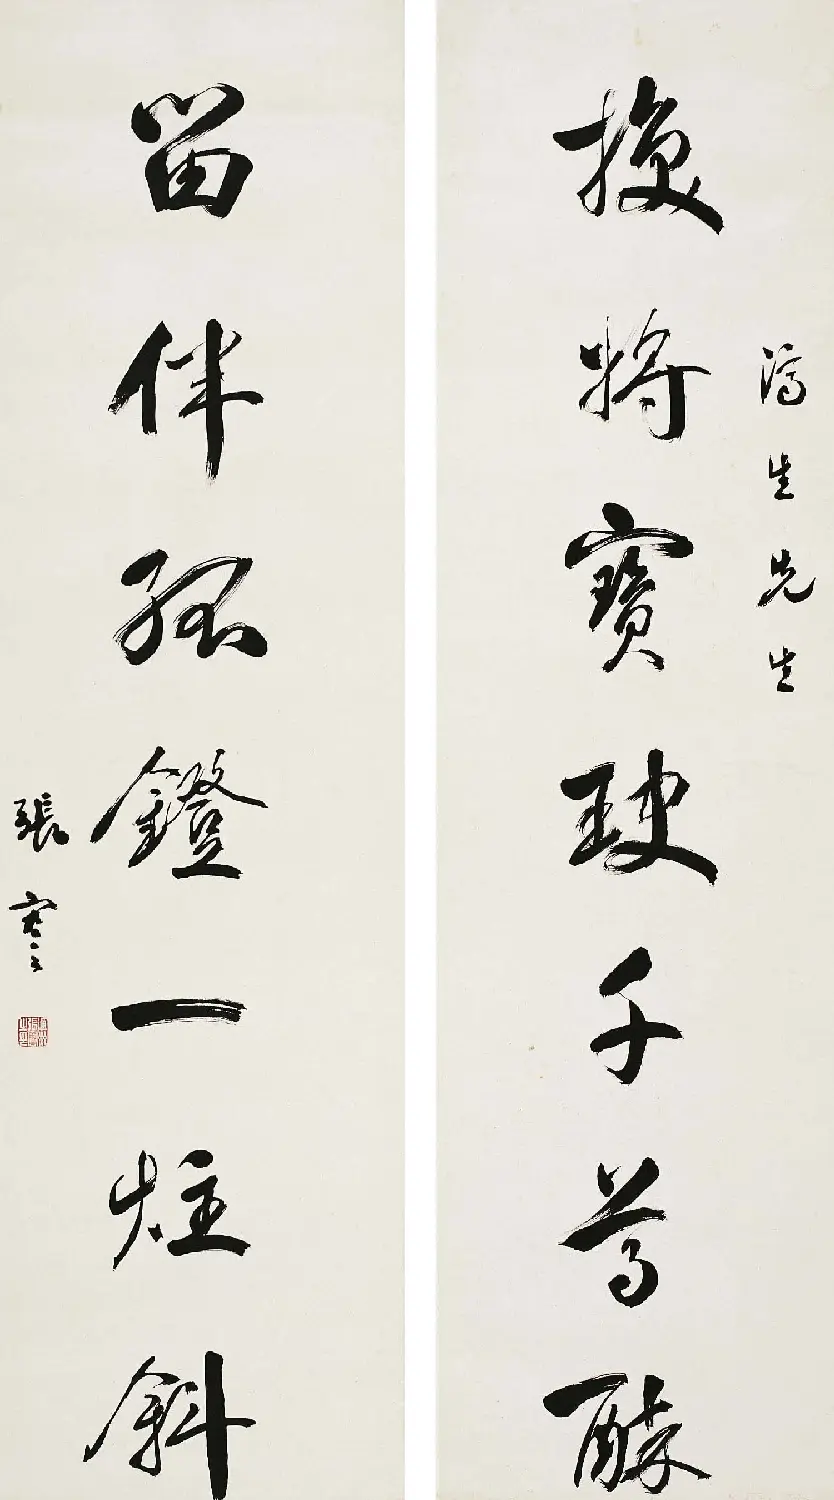 換將寶玦千尊醉
留伴孤鐙一炷斜
生先生
張